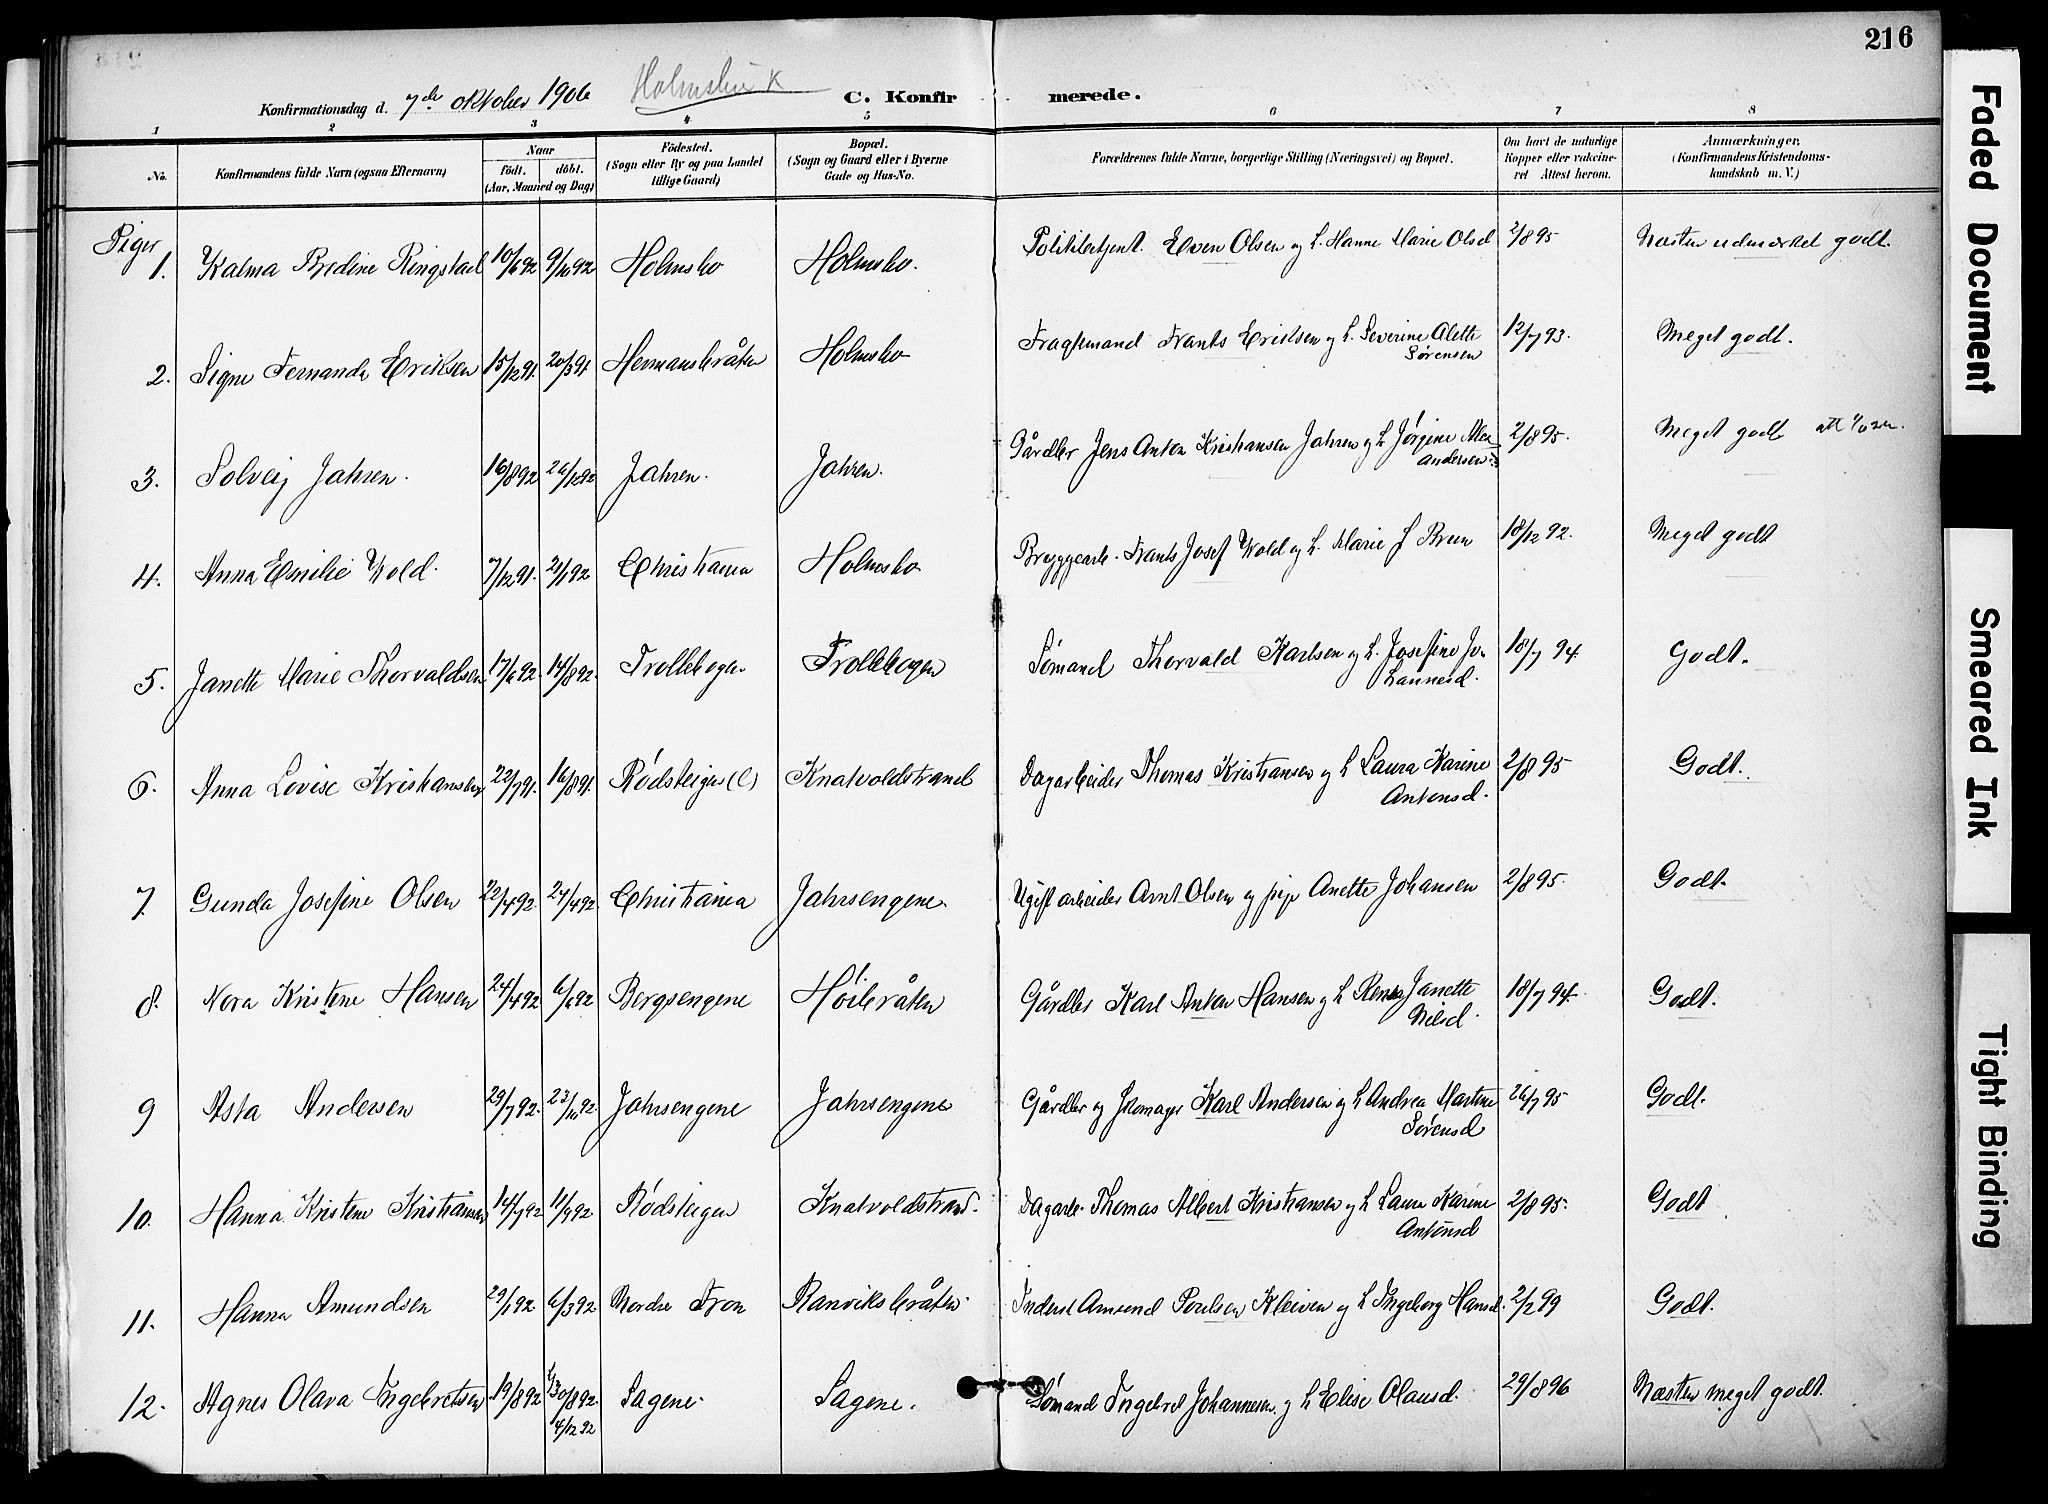 216
Konfirmationsdag d. 7de oktober 1906 Holmsbu K C. Konfirmerede.
1 2 3 4 5 6 7 8
No. Konfirmandens fulde Navn (ogsaa Efternavn) Naar födt. döbt. (Aar, Maaned og Dag) Födested. (Sogn eller By og paa Landet tillige Gaard) Bopæl. (Sogn og Gaard eller i Byerne Gade og Hus-No. Forældrenes fulde Navne, borgerlige Stilling (Næringsvei) og Bopæl. Om havt de naturlige Kopper eller vakcineret Attest herom. Anmærkninger. (Konfirmandens Kristendomskundskab m. V.)
Piger
1. Kalma Bredine Ringstad 10/6 92 9/10 92 Holmsbo Holmsbo. Politibetjent. Even Olsen og h. Hanne Marie Olsd 2/8 95 Næsten udmærket godt.
2. Signe Fernanda Eriksen 15/12 91. 20/3 91. Hermansbråten Holmsbo Fragtmand Frants Eriksen og h. Severine Alette Sørensen 12/7 93. Meget godt.
3. Solveig Jahren. 16/8 92 26/12 92 Jahren. Jahren. Gårdbr Jens Anton Kristiansen Jahren og h Jørgine Andersen 2/8 95. Meget godt
4. Anna Emilie Wold. 7/12 91. 21/1 92 Christiania Holmsbo Bryggearb. Frants Josef Wold og h. Marie J Bruun 18/12 92. Meget godt
5. Janette Marie Thorvaldsen 17/6 92. 14/8 92. Trollebogen Trollebogen Sømand Thorvald Karlsen og h. Josefine Johannesd. 18/7 94. Godt.
6. Anna Lovise Kristiansen 22/7 91. 16/8 91. Rødsteigen (l) Knatvoldstrand Dagarbeider Thomas Kristiansen og h Laura Karine Antonsd. 2/8 95 Godt.
7. Gunda Josefine Olsen 22/4 92. 24/4 92. Christiania Jahrsengene. Ugift arbeider Arnt Olsen og pige Anette Johansen 2/8 95. Godt.
8. Nora Kristene Hansen 24/4 92 6/6 92 Bergsengene Höibråten Gårdbr Karl Anton Hansen og h Rensa Janette Nilsd. 18/7 94. Godt.
9 Asta Andersen 29/7 92. 23/10 92 Jahrsengene Jahrsengene Gårdbr og Skomager Karl Andersen og h Andrea Martene Sørensd 26/7 95 Godt.
10. Hanna Kristene Kristiansen 14/7 92 11/9 92 Rødsteigen Knatvoldstrand. Dagarb. Thomas Albert Kristiansen og h Laura Karine Antonsd 2/8 95. Godt
11. Hanna Amundsen 29/1 92 6/3 92 Nordre Fron Ranviksbråten. Inderst Amund Poulsen Kleiven og h Ingeborg Hansd. 2/2 99 Godt.
12. Agnes Olava Ingebretsen 19/8 92 30/8 92 4/12 92 Sagene. Sagene. Sømand Ingebret Johannesen og h Elise Olausd. 29/8 96 Næsten meget godt.
Faded Document
Smeared Ink
Tight Binding